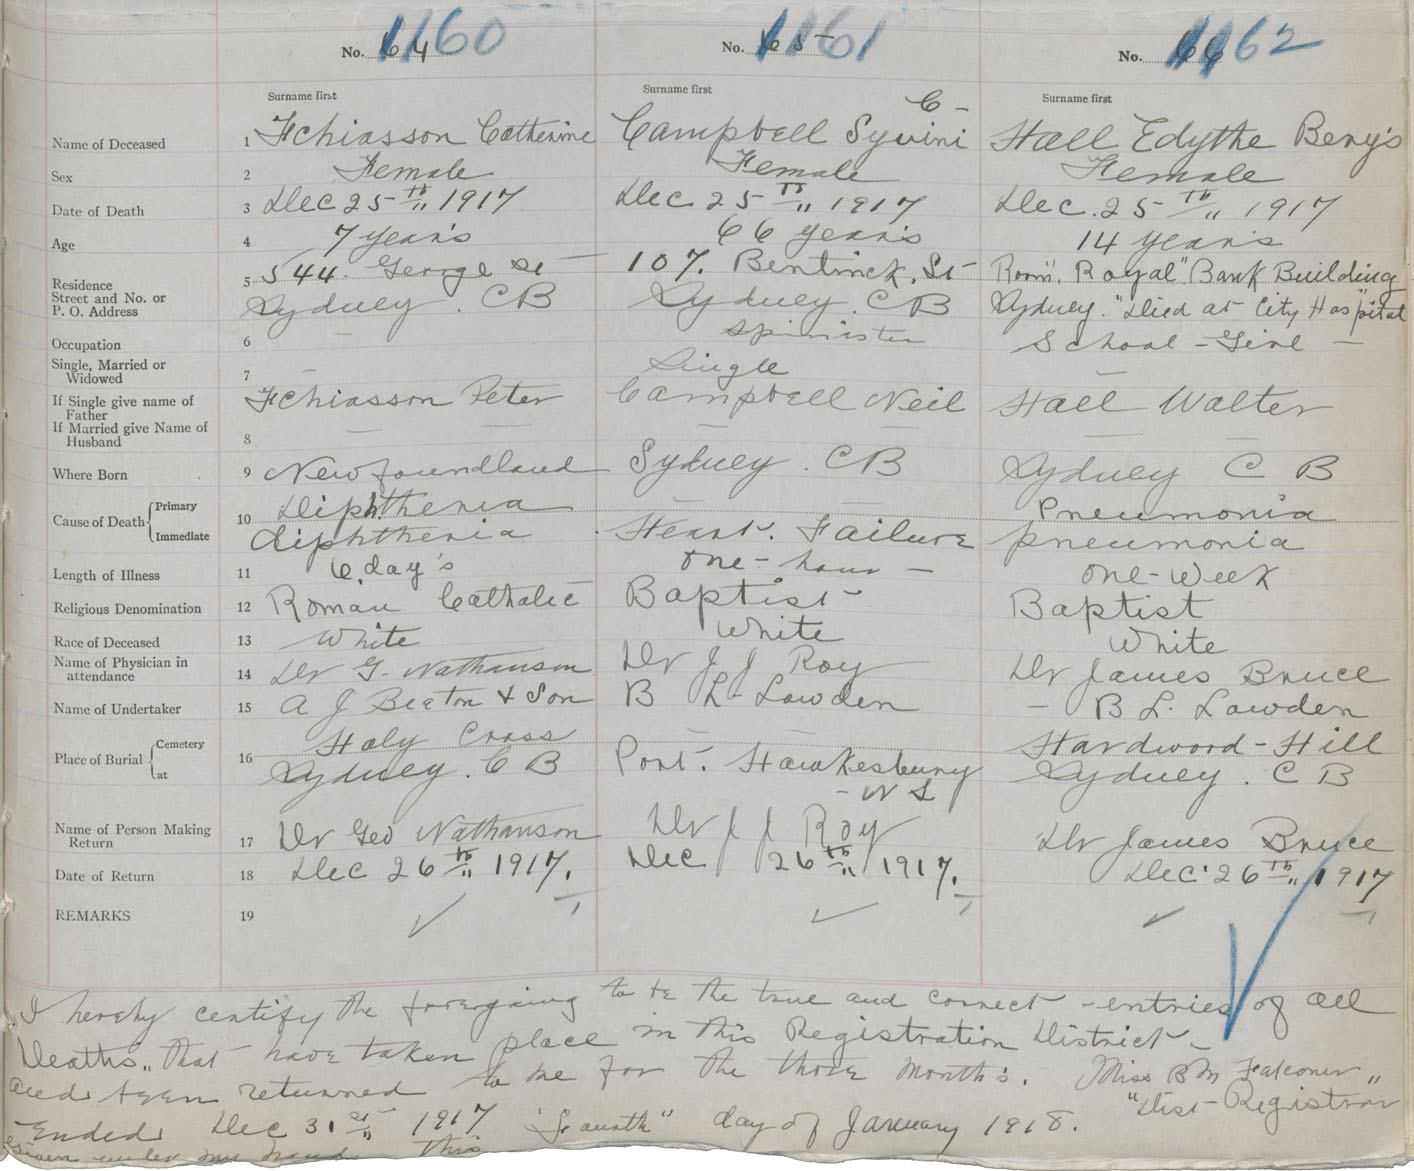 No. 64 1160 No. 65 1161 No. 66 1162
Surname first Surname first Surname first
C -
Name of Deceased 1 Fchiasson Catherine Campbell Syvini Hall Edythe Bery's
Sex 2 Female Female Female
Date of Death 3 Dec 25 th 1917 Dec 25 th 1917 Dec. 25 th 1917
Age 4 7 year's 66 year's 14 year's
Residence 5 544. George St 107. Bentinck. St Room. "Royal" Bank Building
Street and No. or
P. O. Address Sydney. CB Sydney. CB Sydney. "Died at City Hospital
Occupation 6 - Spinister School-Girl -
Single, Married or
Widowed 7 - Single -
If Single give name of
Father Fchiasson Peter Campbell Neil Hall Walter
If Married give Name of
Husband 8 — — — — — —
Where Born 9 Newfoundland Sydney. CB Sydney C B
Cause of Death Primary 10 Diphtheria — — Pneumonia
Immediate diphtheria Heart. Failure pneumonia
Length of Illness 11 6. day's one-hour - one-Week
Religious Denomination 12 Roman Catholic Baptist Baptist
Race of Deceased 13 White White White
Name of Physician in
attendance 14 Dr G. Nathanson Dr J J Roy Dr James Bruce
Name of Undertaker 15 A J Beaton & Son B L Lowden - B L. Lowden
Place of Burial Cemetery 16 Holy Cross Hardwood-Hill
at Sydney. C B Port. Hawkesbury Sydney. C B
- N S
Name of Person Making
Return 17 Dr Geo Nathanson Dr J J Roy Dr James Bruce
Date of Return 18 Dec 26 th 1917. Dec 26 th 1917. Dec. 26 th 1917
REMARKS 19
I hereby certify the foregoing to be the true and correct - entries of all
Deaths,, that have taken place in this Registration District -
and been returned to me for the three months. Miss B M Falconer "
Ended Dec 31 st 1917 "Fourth" day of January 1918. "Dist-Registrar
Given under my hand this